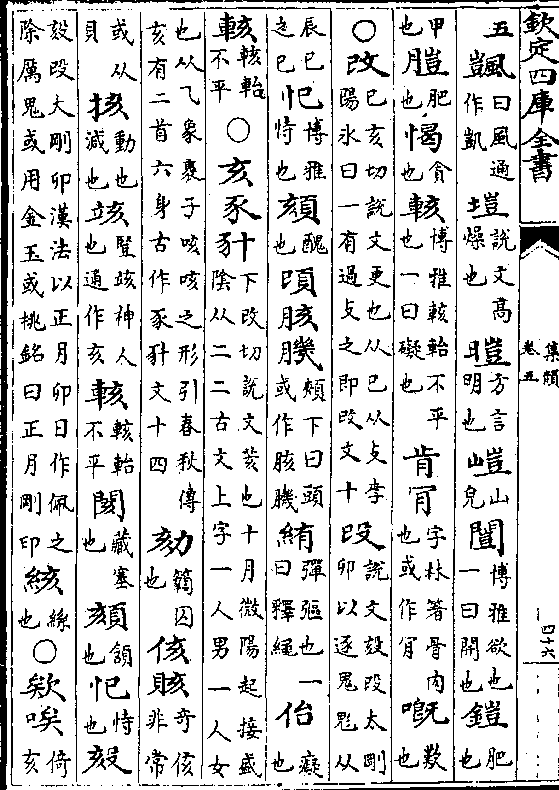 欽定四庫全書 集韻 卷五 四十六
五颽曰風通作凱塏說文高燥也暟方言明也嵦山皃闓博雅欲也一曰開也鎧肥也
甲也膯肥也愒貪也輆博雅輆軩不平也一曰礙也肯肎字林箸骨肉也或作肎嘅歎也
○改已亥切說文更也从巳从攴李陽氷曰一有過攴之即改文十㱼說文㱾攺大剛卯以逐鬼鬽从
辰巳之巳㠱博雅恃也頦醜也胲䐚頰下曰頦或作胲䐚絠彈彄也一曰釋繩佁癡也
輆輆軩不平○亥豕下改切說文荄也十月微陽起接盛陰从二二古文上字一人男一人女
也从乀象褢子咳咳之形引春秋傳亥有二首六身古作豕文十四劾䈅囚也侅賅奇侅非常
或从貝㧡動也減也䇋豎䇋神人也通作亥輆輆軩不平閡藏塞也頦頷也恃也㱾
㱾攺大剛卯漢法以正月卯日作佩之除厲鬼或用金玉或桃銘曰正月剛印絯絲也○欸唉倚亥